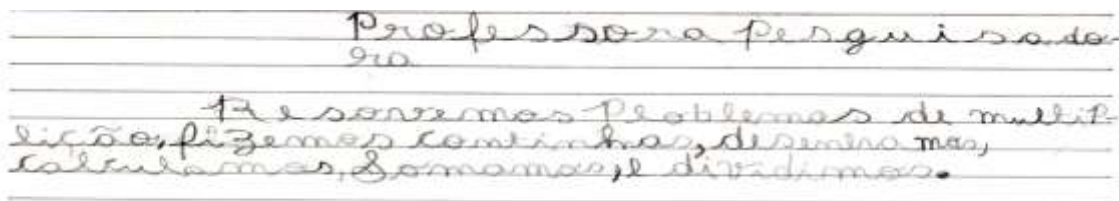 Professora Pesquisado-
ra
Resovemos Ploblemas de multip-
lição, fizemos continhas, desenhamos,
calculamos, Somamos, e dividimos.